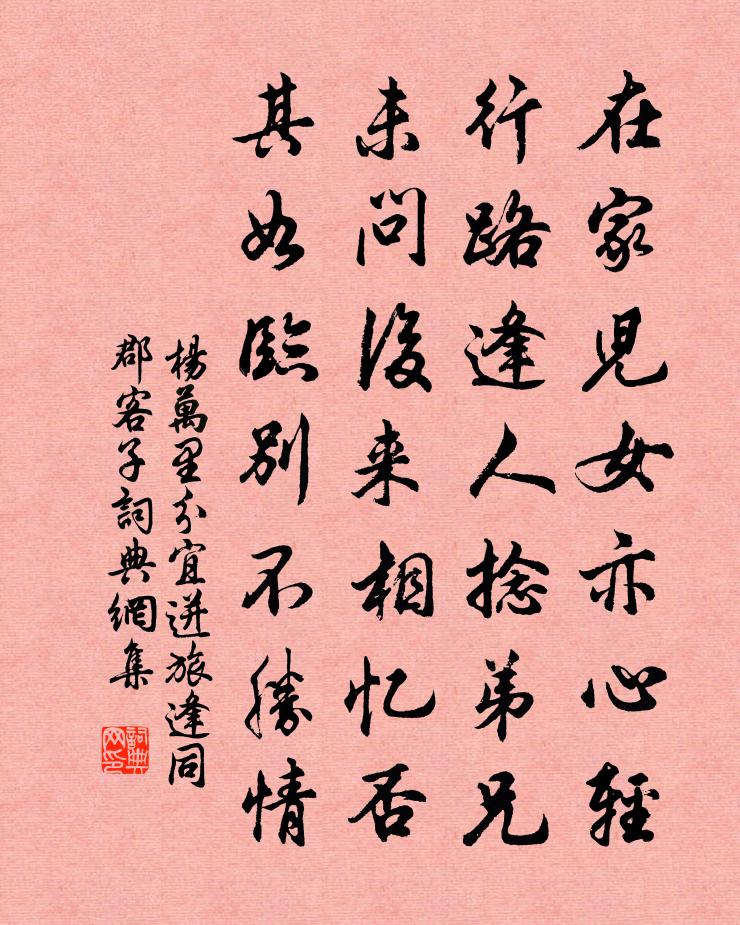 在家兒女亦心輕
行路逢人捻弟兄
未問後来相忆否
其如臨别不勝情
楊萬里分宜逆旅逢同
郡客子詞典網集
詞典网印